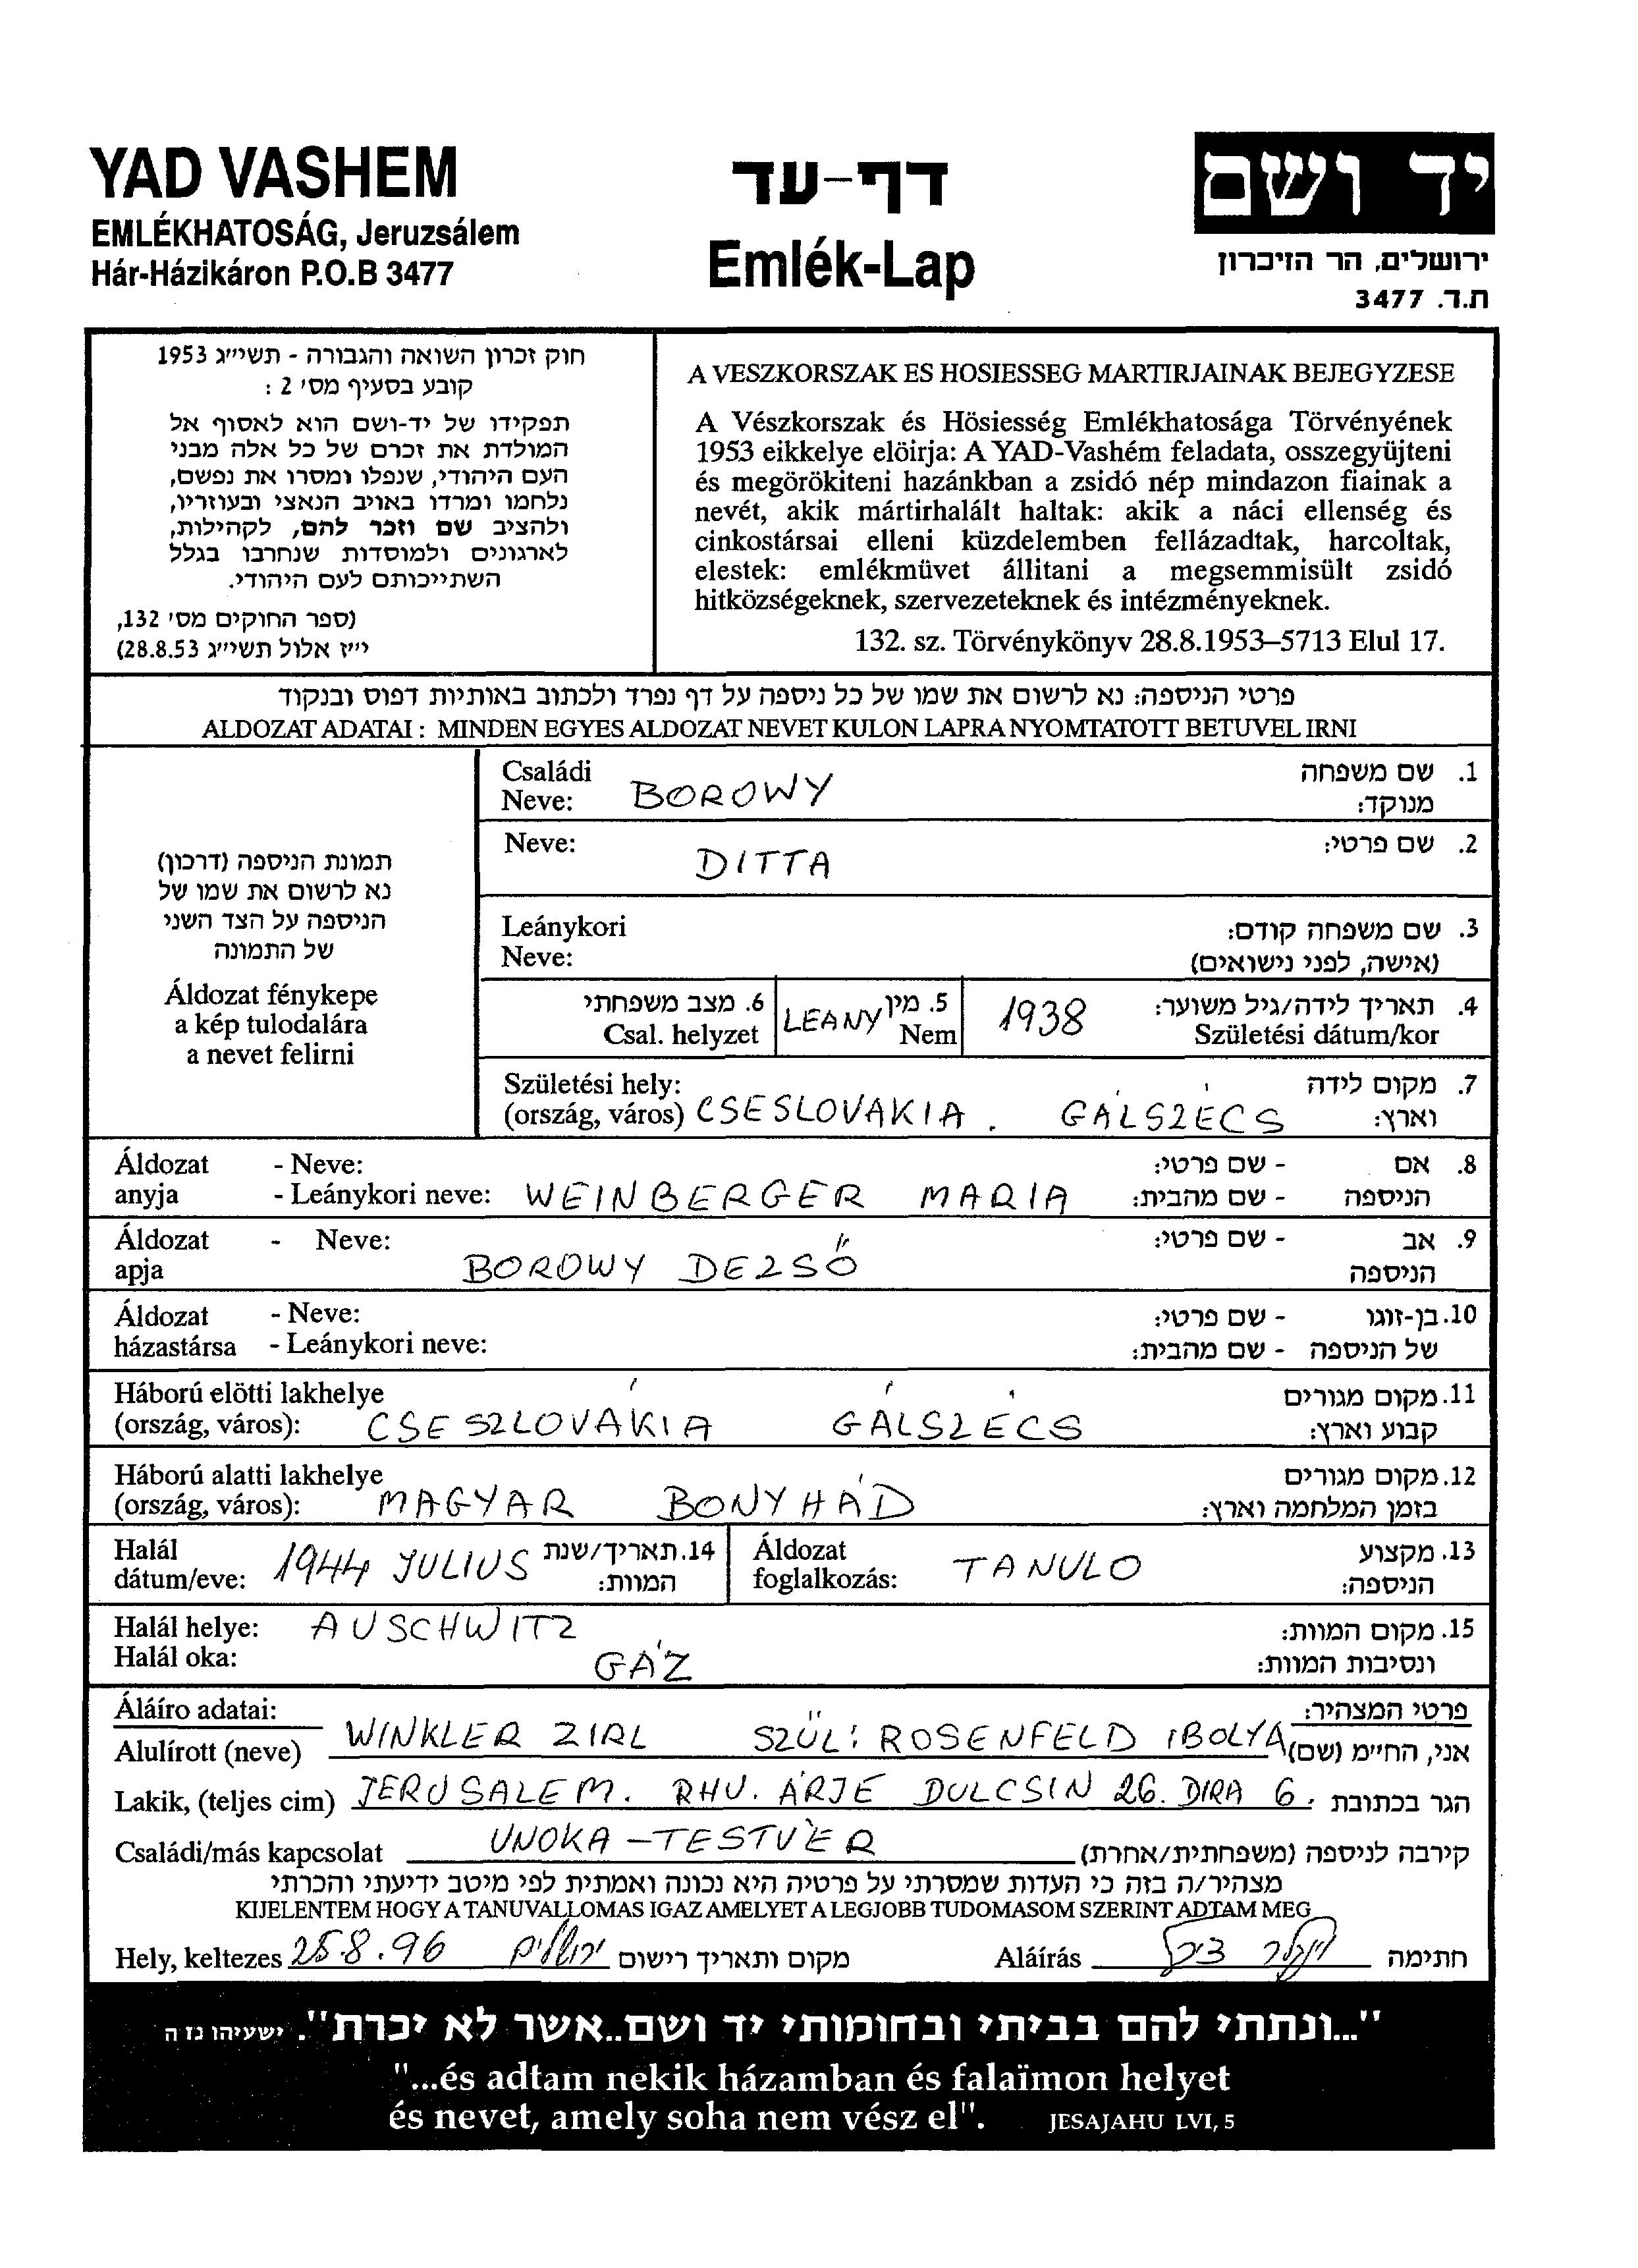 YAD VASHEM
EMLÉKHATOSÁG, Jeruzsálem
Hár-Házikáron P.O.B 3477
דף-עד
Emlék-Lap
יד ושם
ירושלים, הר הזיכרון
ת.ד. 3477
חוק זכרון השואה והגבורה - תשי״ג 1953
קובע בסעיף מס׳ 2 :
תפקידו של יד-ושם הוא לאסוף אל
המולדת את זכרם של כל אלה מבני
העם היהודי, שנפלו ומסרו את נפשם,
נלחמו ומרדו באויב הנאצי ובעוזריו,
ולהציב שם וזכר להם, לקהילות,
לארגונים ולמוסדות שנחרבו בגלל
השתייכותם לעם היהודי.
(ספר החוקים מס׳ 132,
י״ז אלול תשי״ג 28.8.53)
A VESZKORSZAK ES HOSIESSEG MARTIRJAINAK BEJEGYZESE
A Vészkorszak és Hösiesség Emlékhatosága Törvényének
1953 eikkelye elöirja: A YAD-Vashém feladata, osszegyüjteni
és megörökiteni hazánkban a zsidó nép mindazon fiainak a
nevét, akik mártirhalált haltak: akik a náci ellenség és
cinkostársai elleni küzdelemben fellázadtak, harcoltak,
elestek: emlékmüvet állitani a megsemmisült zsidó
hitközségeknek, szervezeteknek és intézményeknek.
132. sz. Törvénykönyv 28.8.1953–5713 Elul 17.
פרטי הניספה: נא לרשום את שמו של כל ניספה על דף נפרד ולכתוב באותיות דפוס ובנקוד
ALDOZAT ADATAI : MINDEN EGYES ALDOZAT NEVET KULON LAPRA NYOMTATOTT BETUVEL IRNI
תמונת הניספה (דרכון)
נא לרשום את שמו של
הניספה על הצד השני
של התמונה
Áldozat fénykepe
a kép tulodalára
a nevet felirni
Családi 1. שם משפחה
Neve: BOROWY מנוקד:
Neve: DITTA 2. שם פרטי:
Leánykori 3. שם משפחה קודם:
Neve: (אישה, לפני נישואים)
6. מצב משפחתי 5. מין 4. תאריך לידה/גיל משוער:
Csal. helyzet LEANY Nem 1938 Születési dátum/kor
Születési hely: 7. מקום לידה
(ország, város) CSESLOVAKIA. GÁLSZÉCS וארץ:
Áldozat - Neve: - שם פרטי: 8. אם
anyja - Leánykori neve: WEINBERGER MARIA - שם מהבית: הניספה
Áldozat - Neve: - שם פרטי: 9. אב
apja BOROWY DEZSŐ הניספה
Áldozat - Neve: - שם פרטי: 10. בן-זוגו
házastársa - Leánykori neve: - שם מהבית: של הניספה
Háború elötti lakhelye 11. מקום מגורים
(ország, város): CSESZLOVÁKIA GÁLSZÉCS קבוע וארץ:
Háború alatti lakhelye 12. מקום מגורים
(ország, város): MAGYAR BONYHÁD בזמן המלחמה וארץ:
Halál 14. תאריך/שנת Áldozat 13. מקצוע
dátum/eve: 1944 JULIUS המוות: foglalkozás: TANULO הניספה:
Halál helye: AUSCHWITZ 15. מקום המוות:
Halál oka: GÁZ ונסיבות המוות:
Áláíro adatai: פרטי המצהיר:
Alulírott (neve) WINKLER ZIRL SZÜL: ROSENFELD IBOLYA אני, החי״מ (שם)
Lakik, (teljes cim) JERUSALEM. RHU. ÁRJE DULCSIN 26. DIRA 6. הגר בכתובת
Családi/más kapcsolat UNOKA-TESTVÉR קירבה לניספה (משפחתית/אחרת)
מצהיר/ה בזה כי העדות שמסרתי על פרטיה היא נכונה ואמתית לפי מיטב ידיעתי והכרתי
KIJELENTEM HOGY A TANUVALLOMAS IGAZ AMELYET A LEGJOBB TUDOMASOM SZERINT ADTAM MEG
Hely, keltezes 25.8.96 ירושלים מקום ותאריך רישום Aláírás וינקלר צירל חתימה
"...ונתתי להם בביתי ובחומותי יד ושם..אשר לא יכרת". ישעיהו נז ה
"...és adtam nekik házamban és falaïmon helyet
és nevet, amely soha nem vész el". JESAJAHU LVI, 5